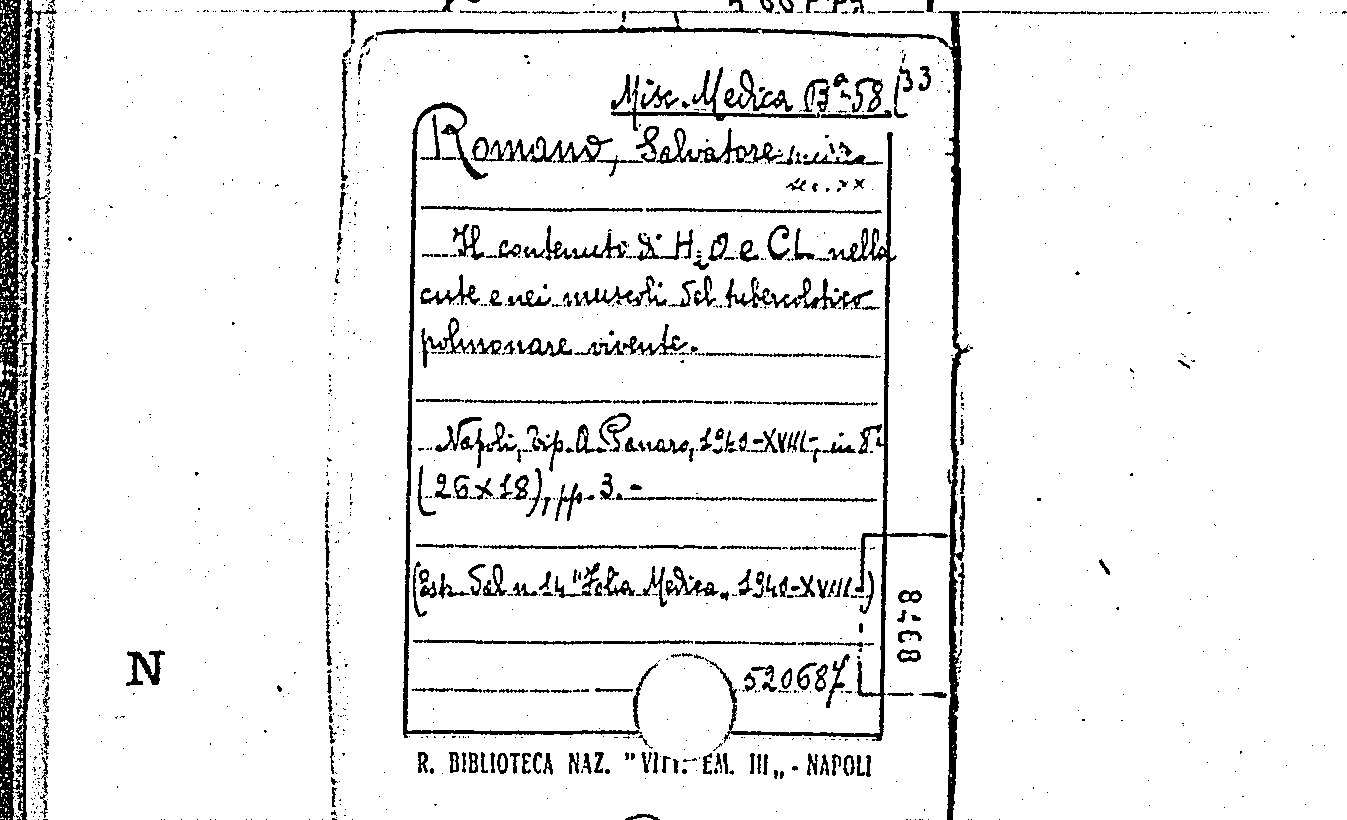 Misc. Medica Bª-58 (33
Romano, Salvatore
sec. XX
Il contenuto di H₂O e CL nella
cute e nei muscoli del tubercolotico
polmonare vivente.
Napoli, Tip. A. Panaro, 1940-XVIII-, in 8º
(26x18), pp. 3.-
(Estr. dal n. 14 "Folia Medica„ 1940-XVIII-)
8468
N
520687
R. BIBLIOTECA NAZ. "VITT. EM. III„ - NAPOLI